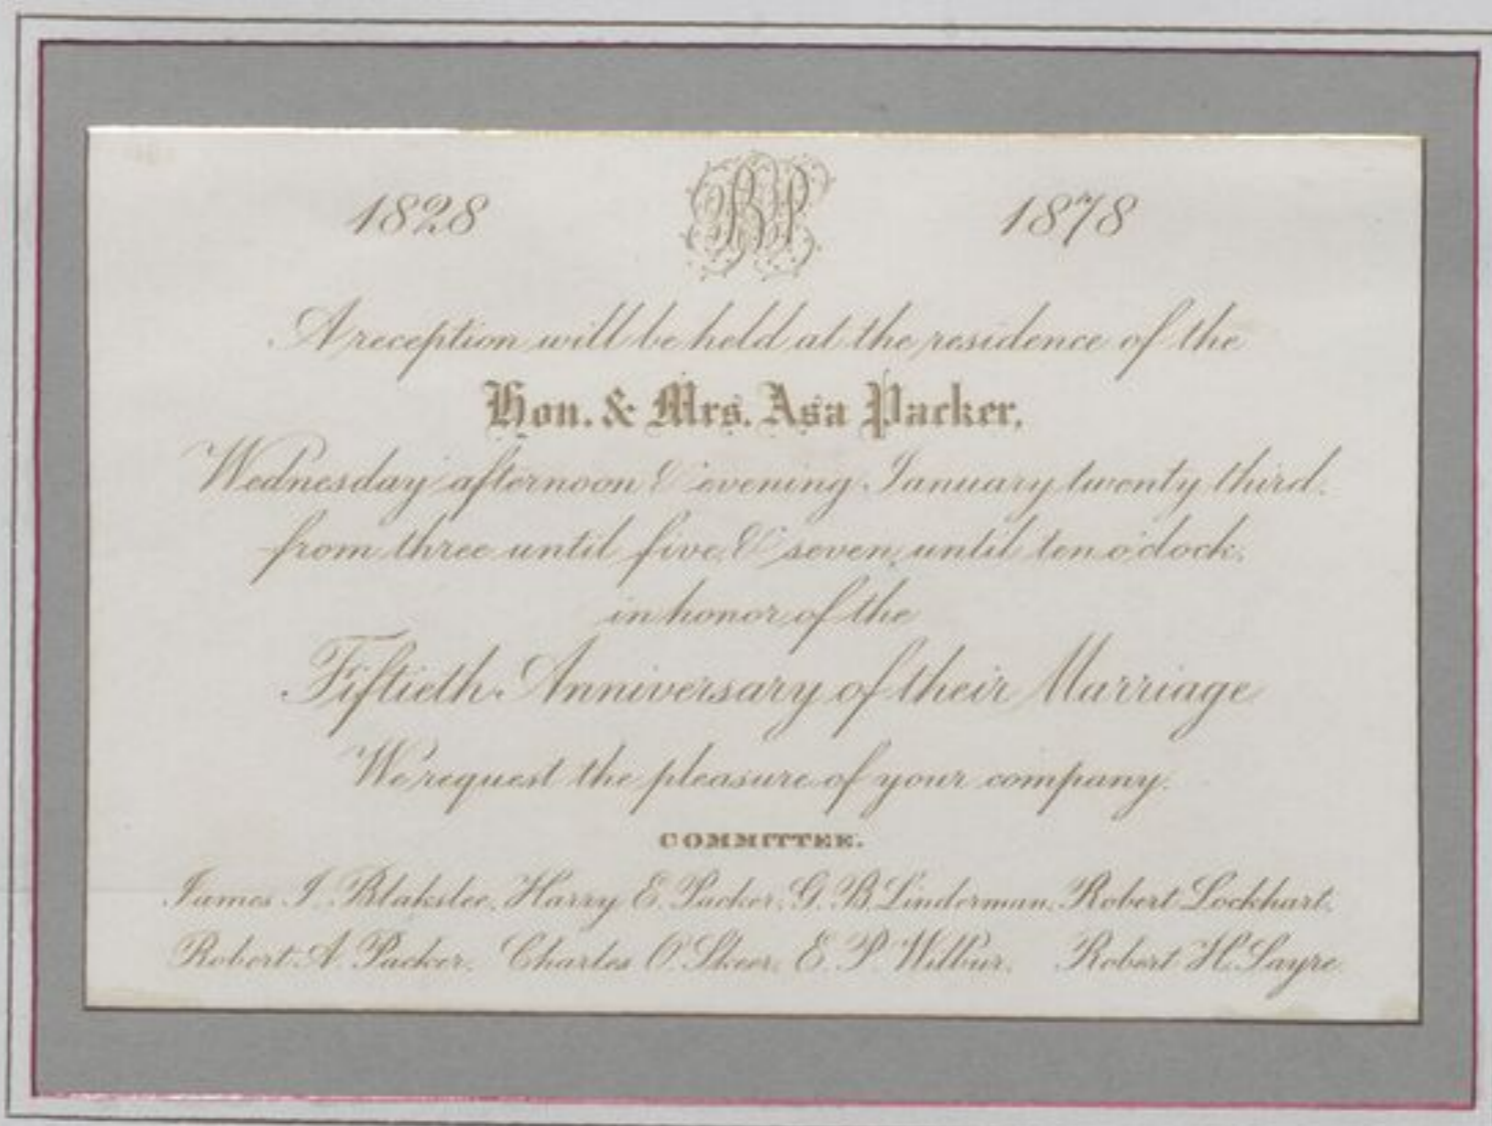 1828 1878
A reception will be held at the residence of the
Hon. & Mrs. Asa Packer,
Wednesday afternoon & evening January twenty third.
from three until five, & seven until ten o'clock,
in honor of the
Fiftieth Anniversary of their Marriage
We request the pleasure of your company.
COMMITTEE.
James I. Blakslee, Harry E. Packer, G. B. Linderman, Robert Lockhart,
Robert A. Packer, Charles O. Skeer, E. P. Wilbur, Robert H. Sayre